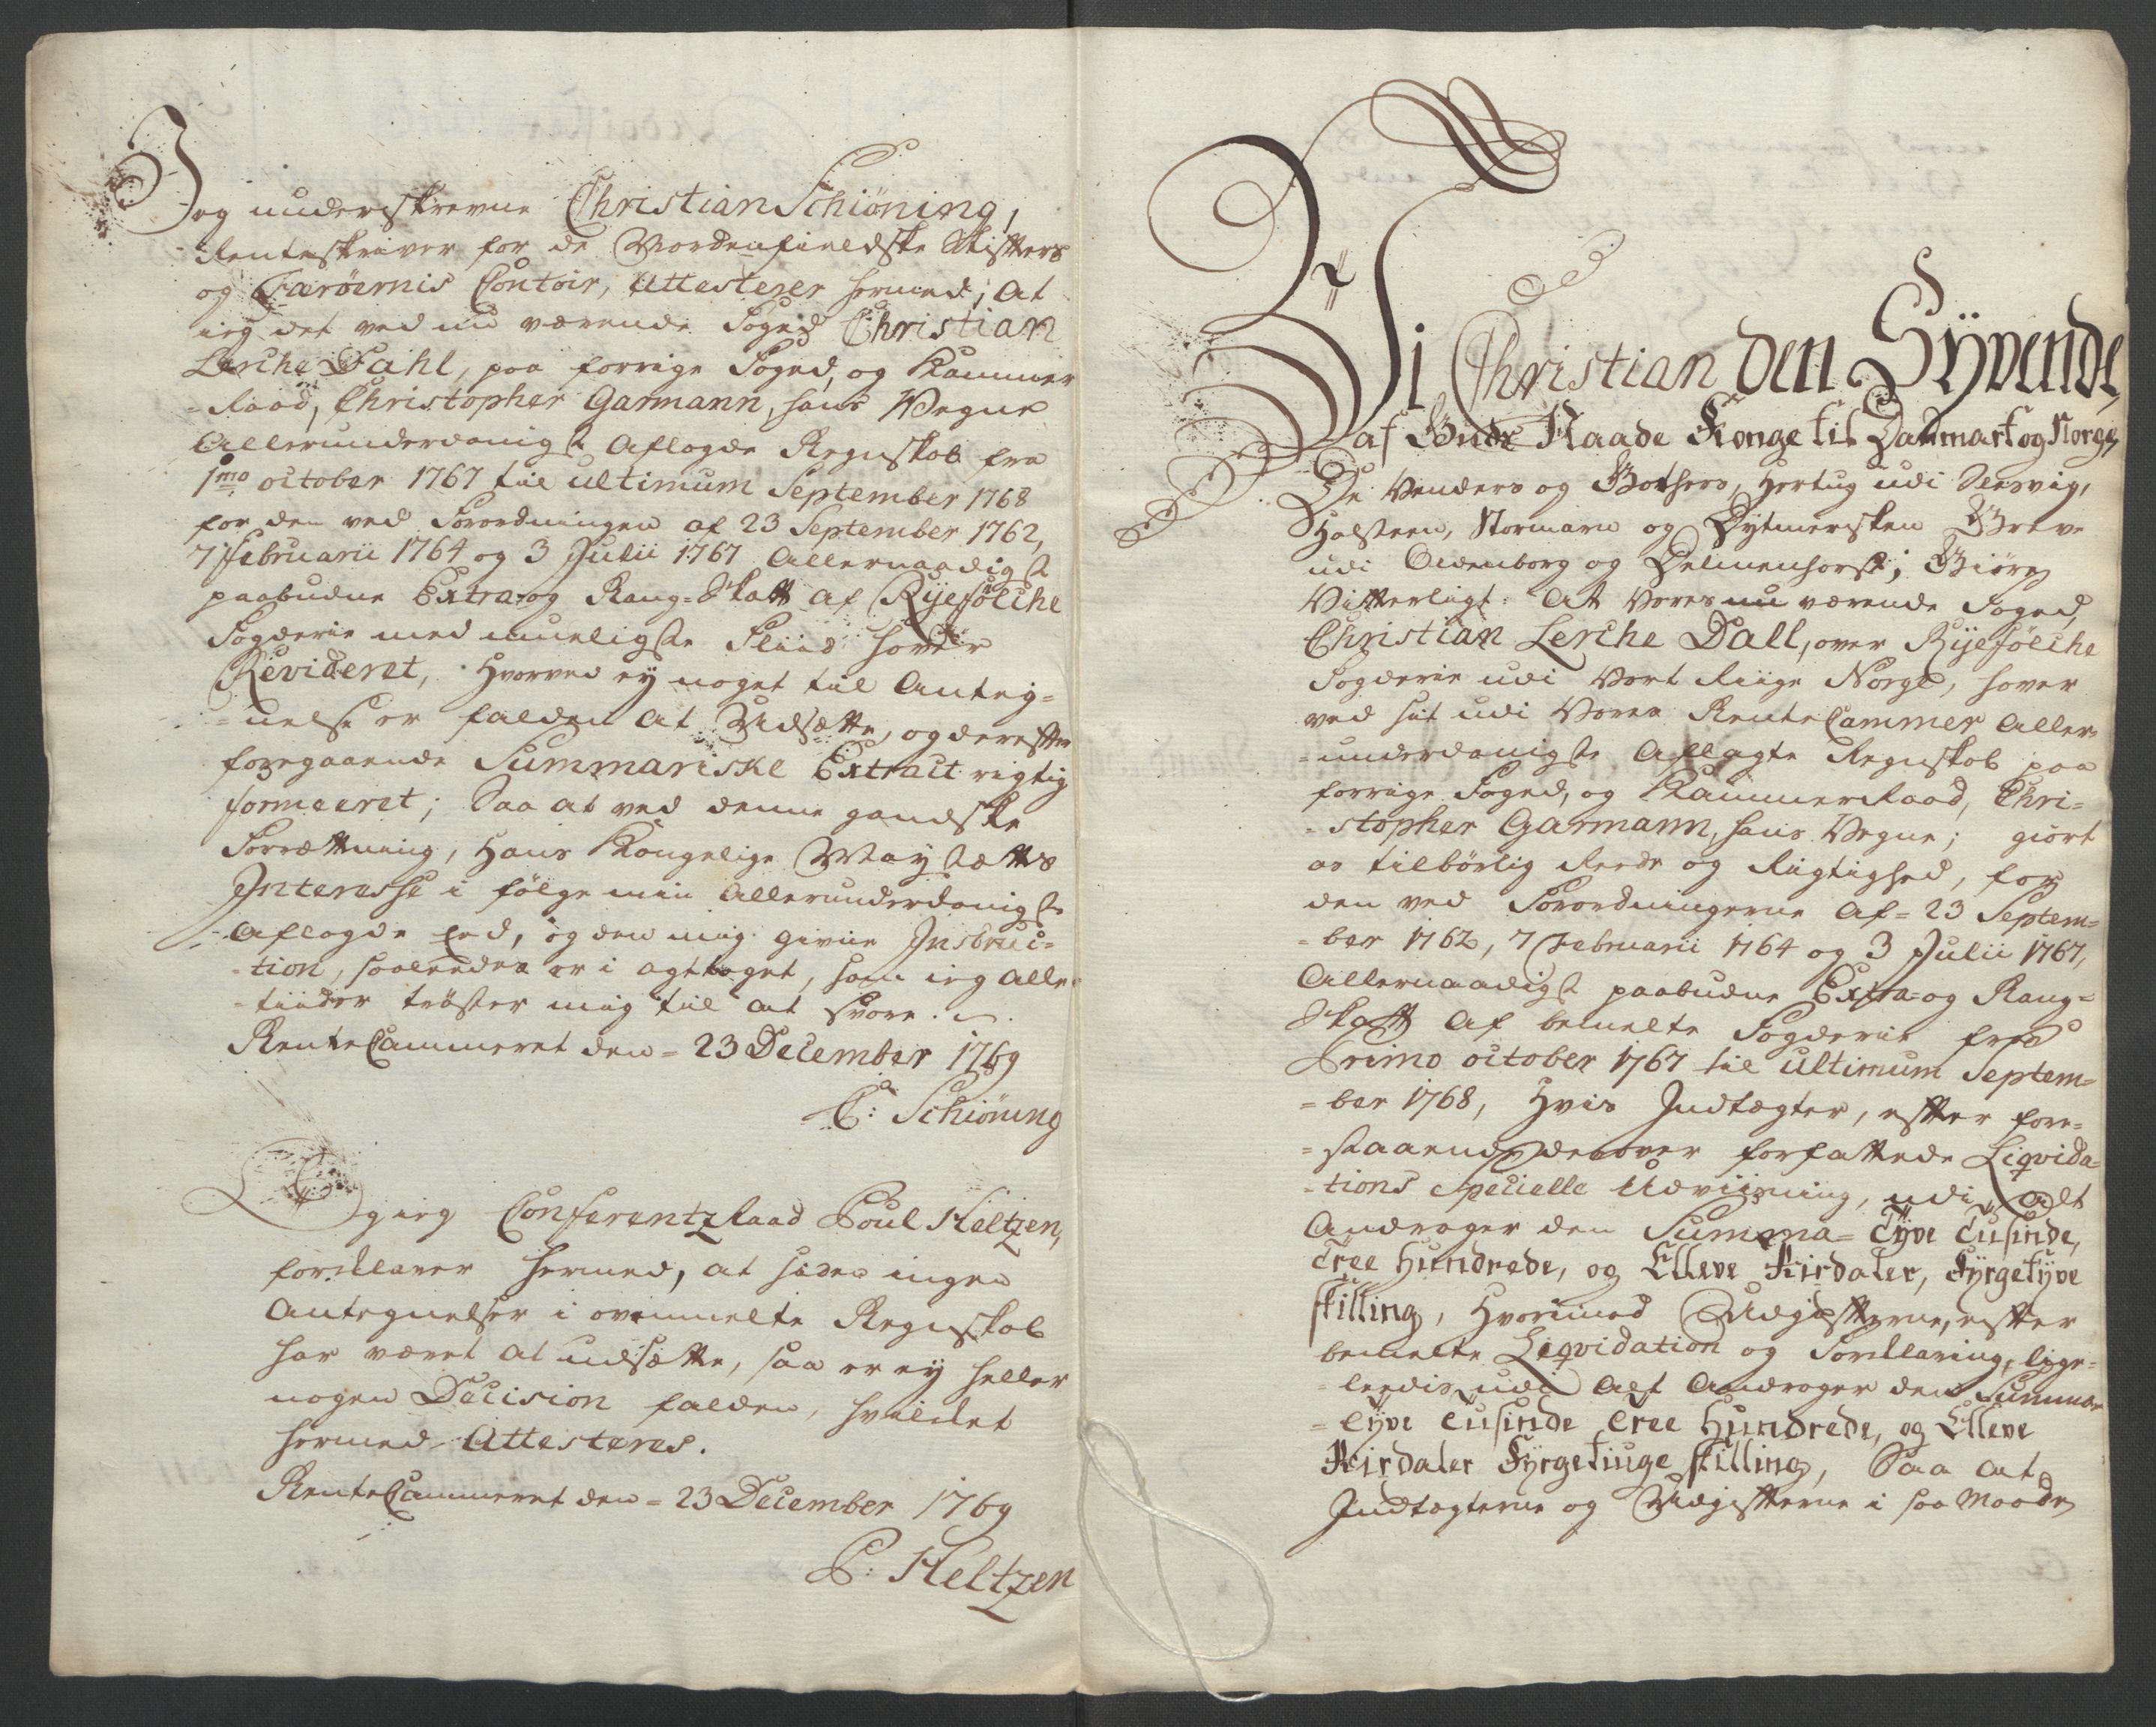 Jeg underskrevne Christian Schiöning,
Renteskriver for de Nordenfieldske Stifters
og Færöernis Contoir, Attesterer hermed; At
ieg det ved nu værende Foged Christian
Lerche Dahl, paa forrige Foged, og Kammer
-Raad, Christopher Garmann, hans Vegne
Allerunderdanigst Aflagde Regnskab fra
1mo october 1767 til ultimum September 1768
for den ved Forordningen af 23 September 1762,
7 Februarii 1764 og 3 Julii 1767 Allernaadigst
paabudne Extra og Rang-Skatt af Ryefölche
Fogderie med mueligste Fliid haver
Revideret, Hvorved ey noget til Anteg-
-nelse er falden at Udsætte, og derefter
foregaaende Summariske Extract rigtig
formeeret; Saa at ved denne gandske
Forrættning, Hans Kongelige Mayestætts
Interesse i fölge min Allerunderdanigste
Aflagde Eed, og den mig givne Instruc-
-tion, saaledes er i agttaget, som ieg alle-
-tiider tröster mig til at svare.
RenteCammeret den 23 December 1769
C: Schiöning
Og ieg ConferentzRaad Poul Heltzen,
forklarer hermed, at siden ingen
Antegnelser i ovenmelte Regnskab
har været at udsætte, saa er ey heller
nogen Decision falden, hvilcket
hermed Attesteres.
RenteCammeret den 23 December 1769
P: Heltzen
Vi Christian den Syvende,
af Guds Naade Konge til Danmark og Norge,
De Venders og Gothers, Hertug udi Slesvig,
Holsteen, Stormarn og Dytmersken Greve
udi Oldenborg og Delmenhorst; Giöre
Vitterligt: At Vores nu værende Foged,
Christian Lerche Dall, over Ryefölche
Fogderie udi Vort Riige Norge, haver
ved sit udi Vores RenteCammer Aller-
-underdanigste Aflagte Regnskab paa
forrige Foged, og KammerRaad, Chri-
-stopher Garmann, hans Vegne; giort
os tilbörlig Reede og Rigtighed, for
den ved Forordningerne af 23 Septem-
-ber 1762, 7 Februarii 1764 og 3 Julii 1767,
Allernaadigst paabudne Extra- og Rang-
Skatt af bemelte Fogderie fra
Primo october 1767 til ultimum Septem-
-ber 1768, Hvis Indtægter, efter fore-
-staaende derover forfattede Liqvida-
-tions Specielle Udviisning, udi alt
Andrager den Summa Tyve Tusinde,
Tree Hundrede, og Elleve Rixdaler, Fyrgetyve
skilling, Hvorimod Udgifterne, efter
bemelte Liqvidation og Forklaring, lige-
-leedis udi Alt Andrager den Summa
Tyve Tusinde Tree Hundrede, og Elleve
Rixdaler Fyrgetiuge skilling, Saa at
Indtægterne og Udgifterne i saa Maade